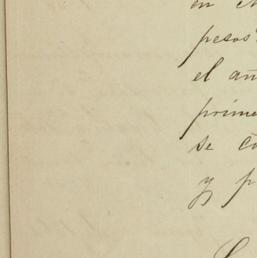 en
pesos
el añ
prime
se co
y p